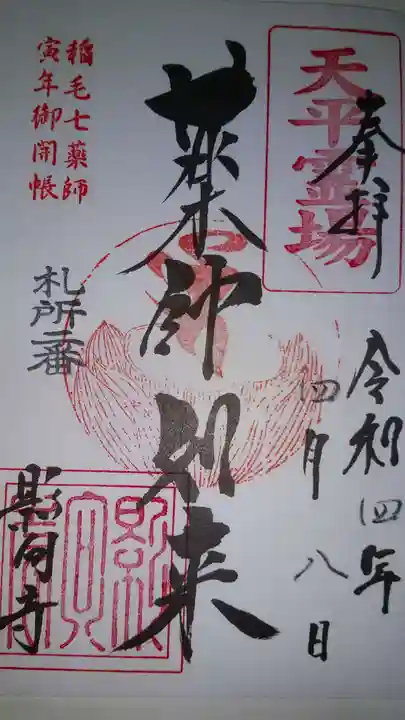 天平霊場
奉拝
令和四年
四月八日
薬師如来
稲毛七薬師
寅年御開帳
札所二番
影向寺
影向寺